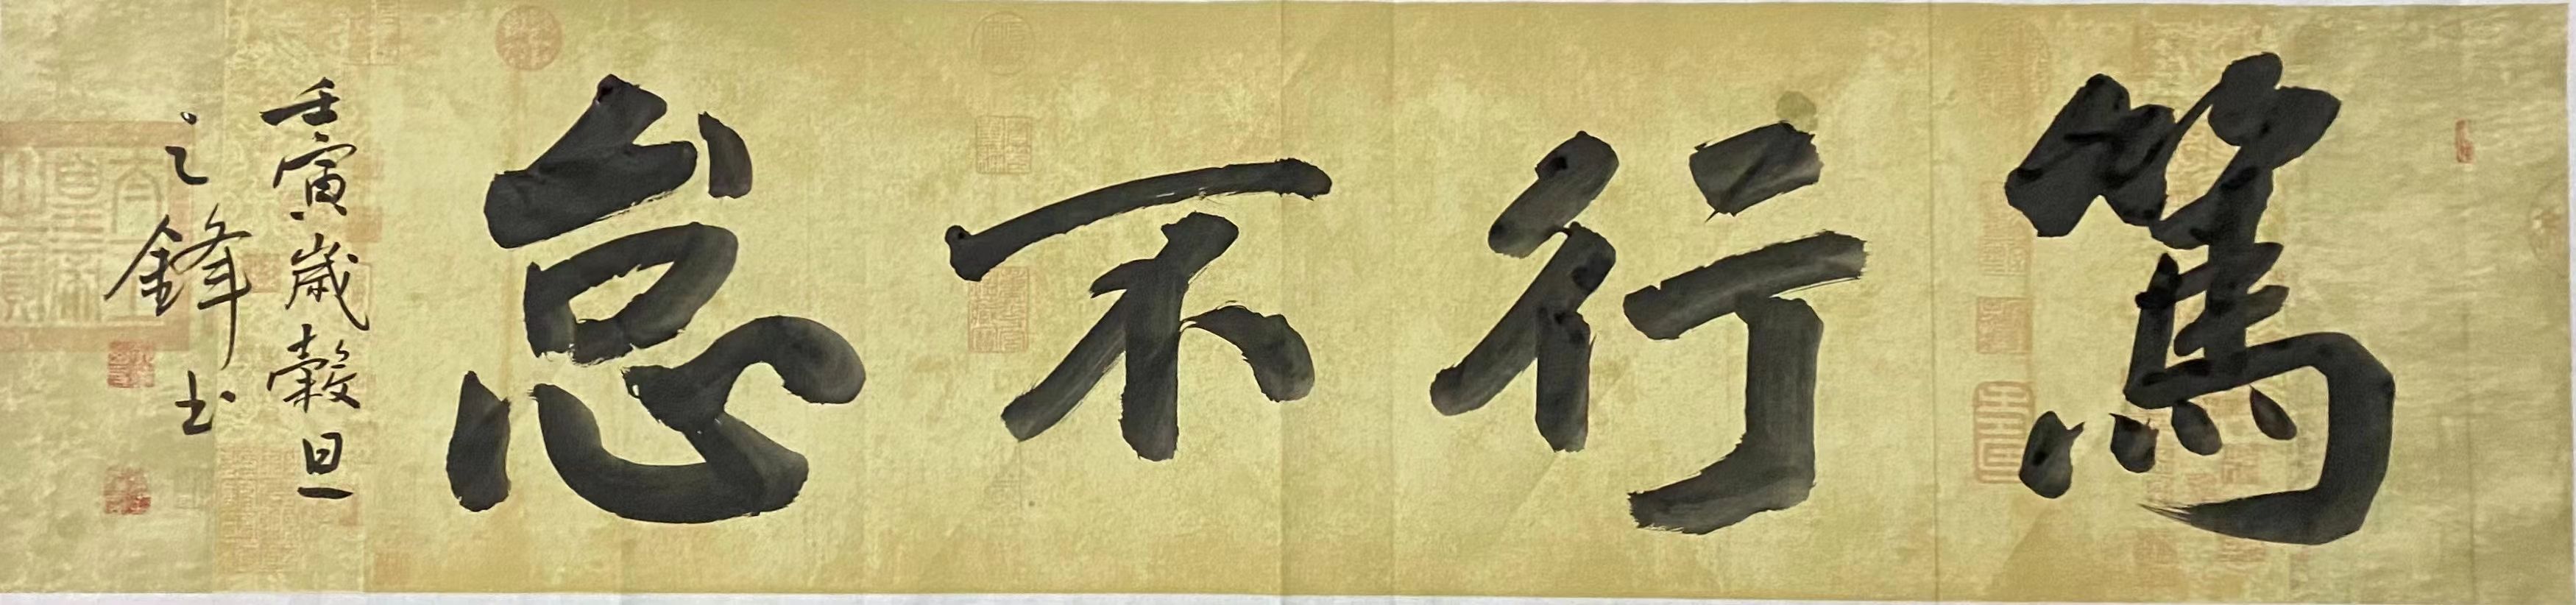 篤行不怠
壬寅歲穀旦
之鋒书